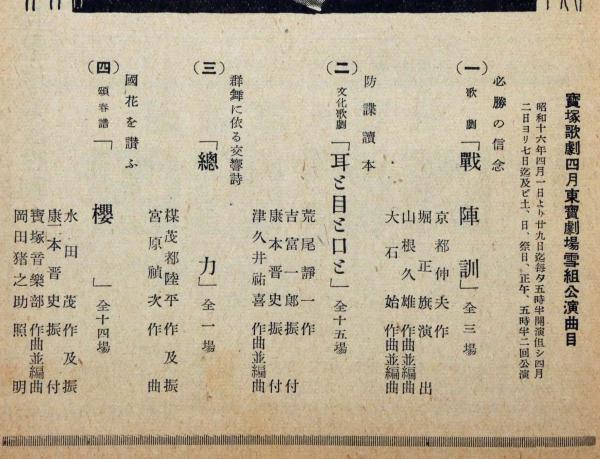 寶塚歌劇四月東寶劇場雪組公演曲目
昭和十六年四月一日より廿九日迄每夕五時半開演但シ四月
二日ヨリ七日迄及ビ土、日、祭日、正午、五時半二回公演
必勝の信念
(一)歌劇「戰陣訓」全三場
京都伸夫作
堀正旗演出
山根久雄作曲並編曲
大石始作曲並編曲
防諜讀本
(二)文化歌劇「耳と目と口と」全十五場
荒尾靜一作
吉富一郎振付
康本晋史振付
津久井祐喜作曲並編曲
群舞に依る交響詩
(三)「總力」全一場
楳茂都陸平作及振付
宮原禎次作曲
國花を讃ふ
(四)頌春譜「櫻」全十四場
水田茂作及振付
康本晋史振付
寶塚音樂部作曲並編曲
岡田猪之助照明